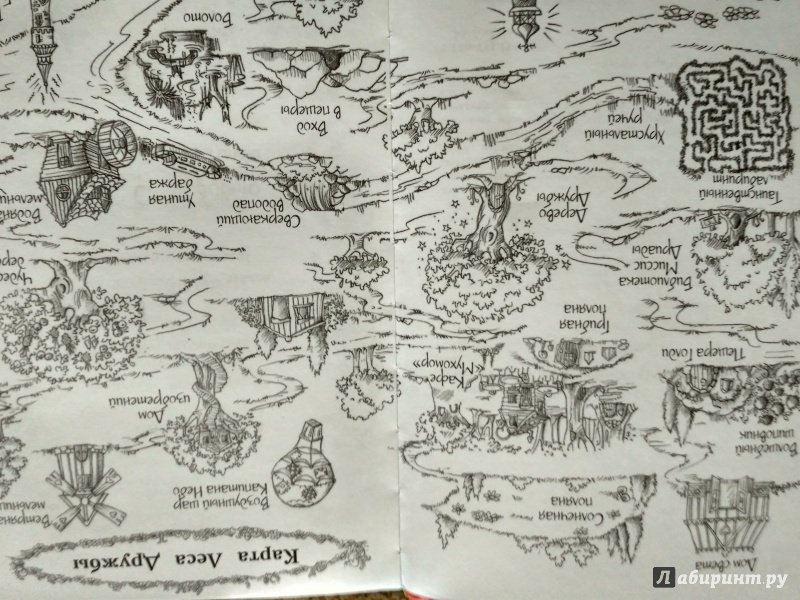 Карта Леса Дружбы
Дом света
Солнечная
поляна
Воздушный шар
Капитана Небо
Ветряна
мельни
Волшебный
шиповник
Кафе
«Мухомор»
Дом
изобретений
Пещера Голди
Грибная
поляна
Библиотека
Миссис
Дриады
Дерево
Дружбы
Чудес
дере
Таинственный
лабиринт
Хрустальный
ручей
Сверкающий
водопад
Утиная
баржа
Водяна
мельни
Вход
в пещеры
Болото
Лабиринт.ру